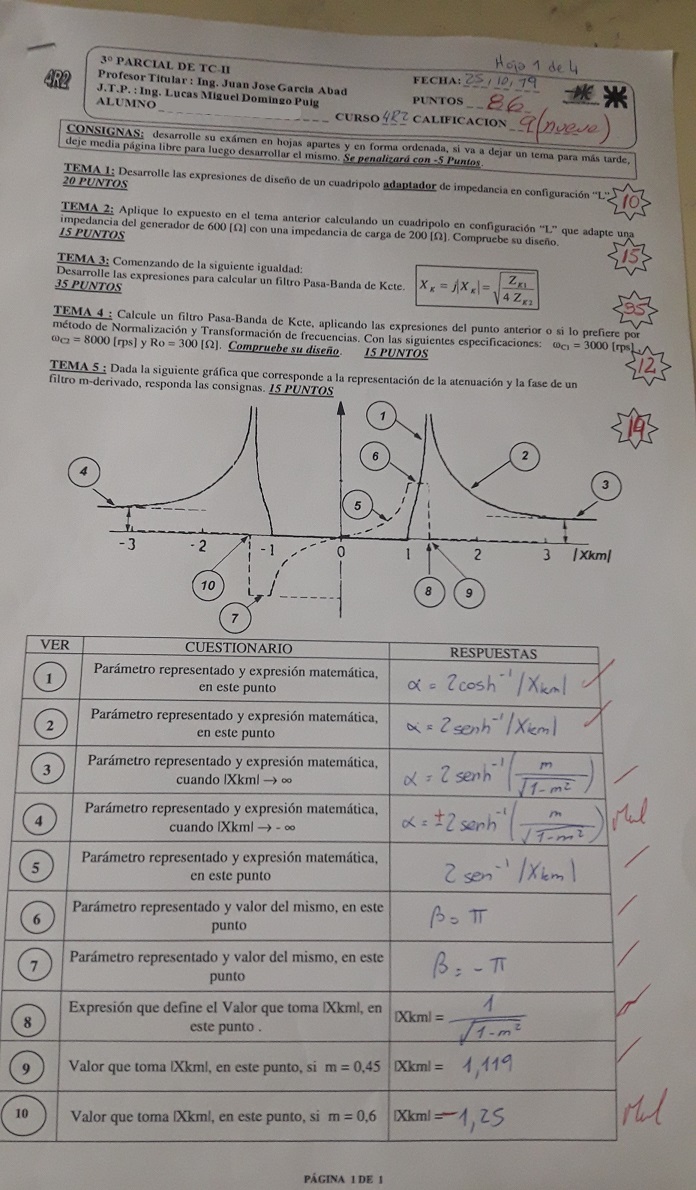 Hoja 1 de 4
4R2
3° PARCIAL DE TC-II
Profesor Titular : Ing. Juan Jose Garcia Abad
J.T.P. : Ing. Lucas Miguel Domingo Puig
ALUMNO
FECHA: 25, 10, 19
PUNTOS 86
CURSO 4R2 CALIFICACION 9 (nueve)
CONSIGNAS: desarrolle su exámen en hojas apartes y en forma ordenada, si va a dejar un tema para más tarde,
deje media página libre para luego desarrollar el mismo. Se penalizará con -5 Puntos.
TEMA 1: Desarrolle las expresiones de diseño de un cuadripolo adaptador de impedancia en configuración "L".
20 PUNTOS
10
TEMA 2: Aplique lo expuesto en el tema anterior calculando un cuadripolo en configuración "L" que adapte una
impedancia del generador de 600 [Ω] con una impedancia de carga de 200 [Ω]. Compruebe su diseño.
15 PUNTOS
15
TEMA 3: Comenzando de la siguiente igualdad:
Desarrolle las expresiones para calcular un filtro Pasa-Banda de Kcte.
35 PUNTOS
X_K = j|X_K| = √(Z_K1 / 4 Z_K2)
35
TEMA 4 : Calcule un filtro Pasa-Banda de Kcte, aplicando las expresiones del punto anterior o si lo prefiere por
método de Normalización y Transformación de frecuencias. Con las siguientes especificaciones: ω_C1 = 3000 [rps],
ω_C2 = 8000 [rps] y Ro = 300 [Ω]. Compruebe su diseño. 15 PUNTOS
12
TEMA 5 : Dada la siguiente gráfica que corresponde a la representación de la atenuación y la fase de un
filtro m-derivado, responda las consignas. 15 PUNTOS
14
1
6
2
4
3
5
-3 -2 -1 0 1 2 3 |Xkm|
10
8
9
7
VER CUESTIONARIO RESPUESTAS
1 Parámetro representado y expresión matemática,
en este punto
α = 2 cosh⁻¹ |Xkm|
2 Parámetro representado y expresión matemática,
en este punto
α = 2 senh⁻¹ |Xkm|
3 Parámetro representado y expresión matemática,
cuando |Xkm| → ∞
α = 2 senh⁻¹ (m / √(1-m²))
4 Parámetro representado y expresión matemática,
cuando |Xkm| → - ∞
α = ±2 senh⁻¹ (m / √(1-m²)) Mal
5 Parámetro representado y expresión matemática,
en este punto
2 sen⁻¹ |Xkm|
6 Parámetro representado y valor del mismo, en este
punto
β = π
7 Parámetro representado y valor del mismo, en este
punto
β = -π
8 Expresión que define el Valor que toma |Xkm|, en
este punto .
|Xkm| = 1 / √(1-m²)
9 Valor que toma |Xkm|, en este punto, si m = 0,45 |Xkm| = 1,119
10 Valor que toma |Xkm|, en este punto, si m = 0,6 |Xkm| = -1,25 Mal
PÁGINA 1 DE 1